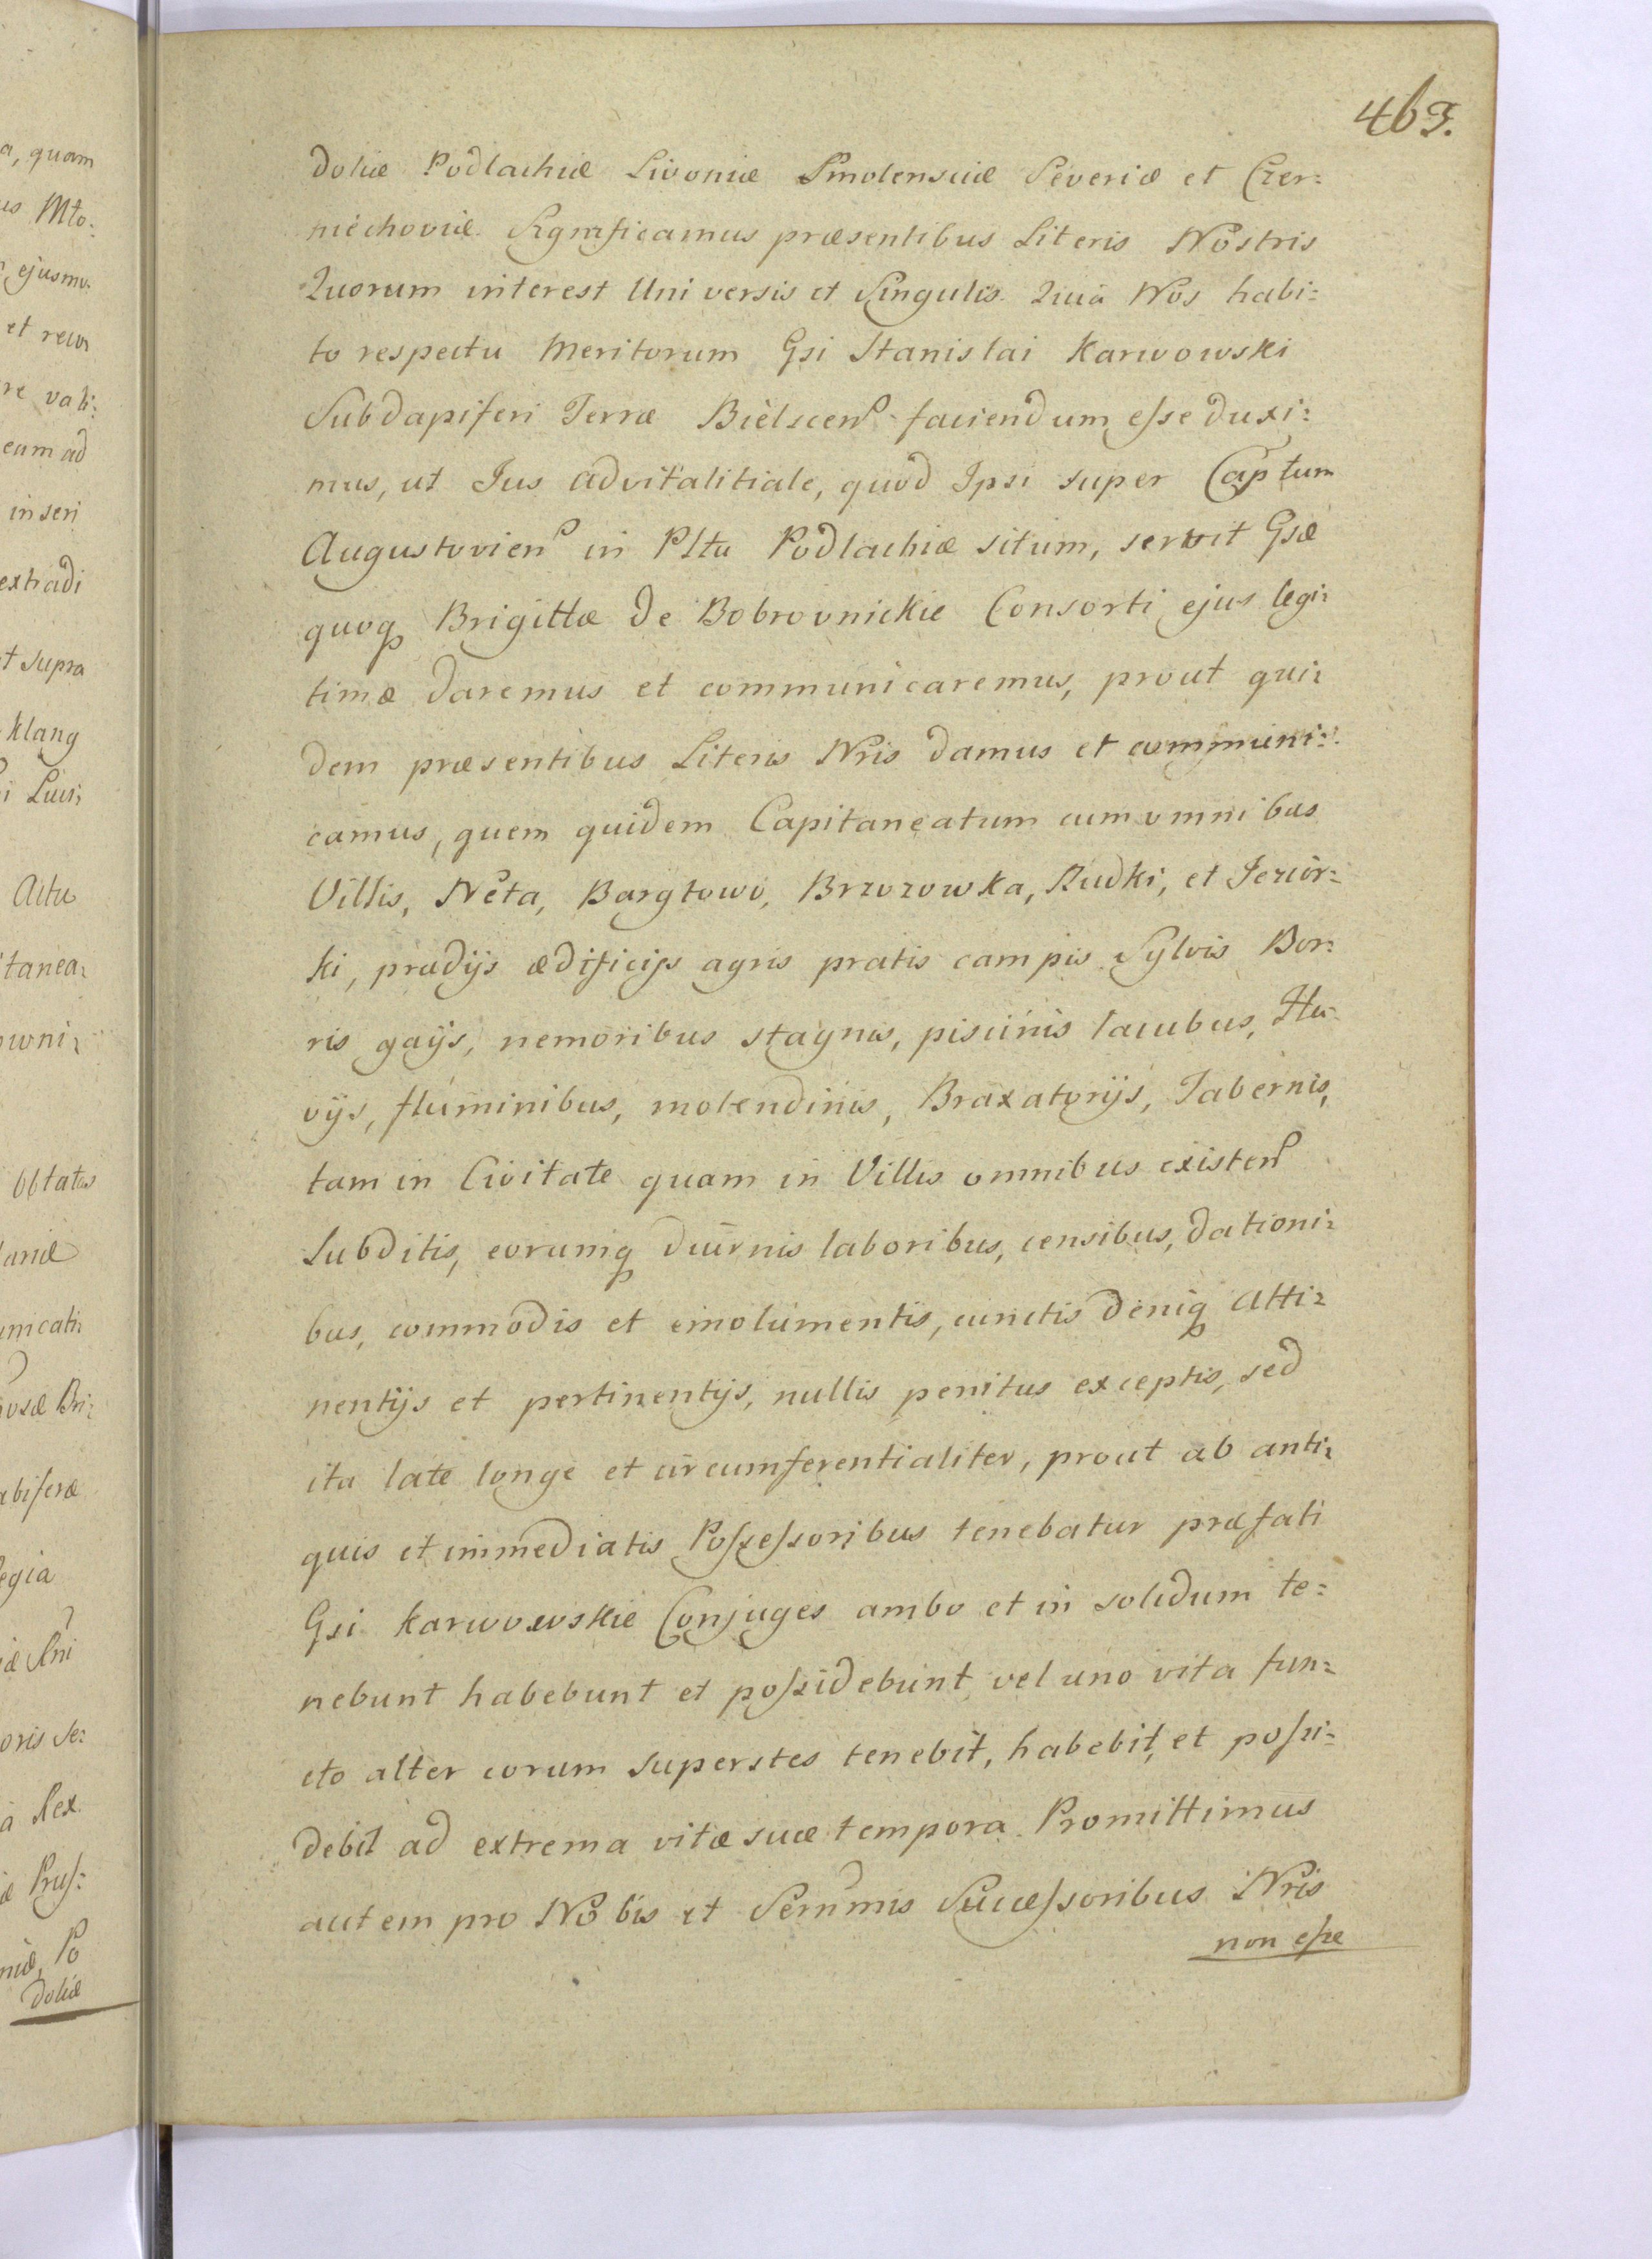 463.
doliæ Podlachiæ Livoniæ Smolensciæ Severiæ et Czer:
niechoviæ. Significamus præsentibus Literis Nostris
Quorum interest Universis et Singulis. Quia Nos habi:
to respectu Meritorum Gsi Stanislai Karwowski
Subdapiferi Terræ Bielscen. faciendum esse duxi:
mus, ut Jus advitalitiale, quod Ipsi super Captum
Augustovien in Pltu Podlachiæ situm, servit Gsæ
quoq Brigittæ de Bobrovnickie Consorti ejus legi:
timæ daremus et communicaremus, prout qui:
dem præsentibus Literis Nris damus et communi:
camus, quem quidem Capitaneatum cum omnibus
Villis, Neta, Bargłowo, Brzozowka, Rudki, et Jezior:
ki, prædijs ædificijs agris pratis campis Sylvis Bor:
ris gaijs, nemoribus stagnis, piscinis lacubus, Flu:
vijs, fluminibus, molendinis, Braxatorijs, Tabernis,
tam in Civitate quam in Villis omnibus existen
Subditis, eorumq diurnis laboribus, censibus, dationi:
bus, commodis et emolumentis, cunctis deniq Atti:
nentijs et pertinentijs, nullis penitus exceptis, sed
ita late longe et circumferentialiter, prout ab anti:
quis et immediatis Possessoribus tenebatur præfati
Gsi Karwowskie Conjuges ambo et in solidum te:
nebunt habebunt et possidebunt vel uno vita fun:
cto alter eorum superstes tenebit, habebit, et possi:
debit ad extrema vitæ suæ tempora. Promittimus
autem pro Nobis et Serenmis Successoribus Nris
non esse
a, quam
us Mto:
ejusmo:
et recog
re vali:
eam ad
inseri
extradi
t supra
Klang
Actu
itanea:
owni:
obtatus
unicati:
osæ Bri:
egia
oris Se:
a Rex.
æ Prus:
niæ, Po
doliæ